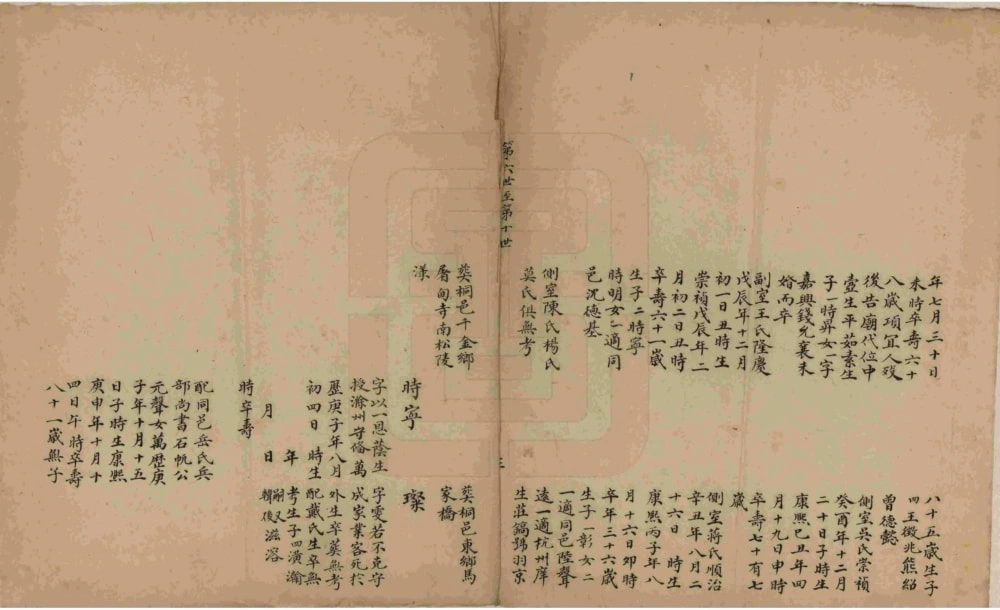 年七月三十日
未時卒壽六十
八歲項宜人歿
後告廟代位中
壼生平茹素生
子一時昇女一字
嘉興錢允襄未
婚而卒
副室王氏隆慶
戊辰年十二月
初一日丑時生
崇禎戊辰年二
月初二日丑時
卒壽六十一歲
生子二時寧
時明女一適同
邑沈德基
側室陳氏楊氏
莫氏俱無考
八十五歲生子
四王徵兆熊紹
曾德懿
側室吳氏崇禎
癸酉年十二月
二十日子時生
康熙己丑年四
月十九日申時
卒壽七十有七
歲
側室蔣氏順治
辛丑年八月二
十六日 時生
康熙丙子年八
月十六日卯時
卒年三十六歲
生子一彰女二
一適同邑陸聲
遠一適杭州庠
生莊鎬號羽京
第六世至第十世
三
葬桐邑千金鄉
厝甸寺南松陵
漾
時寧
字以一恩蔭生
授滁州守備萬
歷庚子年八月
初四日 時生
年
月 日
時卒壽
配同邑岳氏兵
部尚書石帆公
元聲女萬歷庚
子年十月十五
日子時生康熙
庚申年十月十
四日午時卒壽
八十一歲無子
葬桐邑東鄉馬
家橋
璨
字愛若不克守
成家業客死於
外生卒葬無考
配戴氏生卒無
考生子四潢瀚
嗣又
韓後滋溶